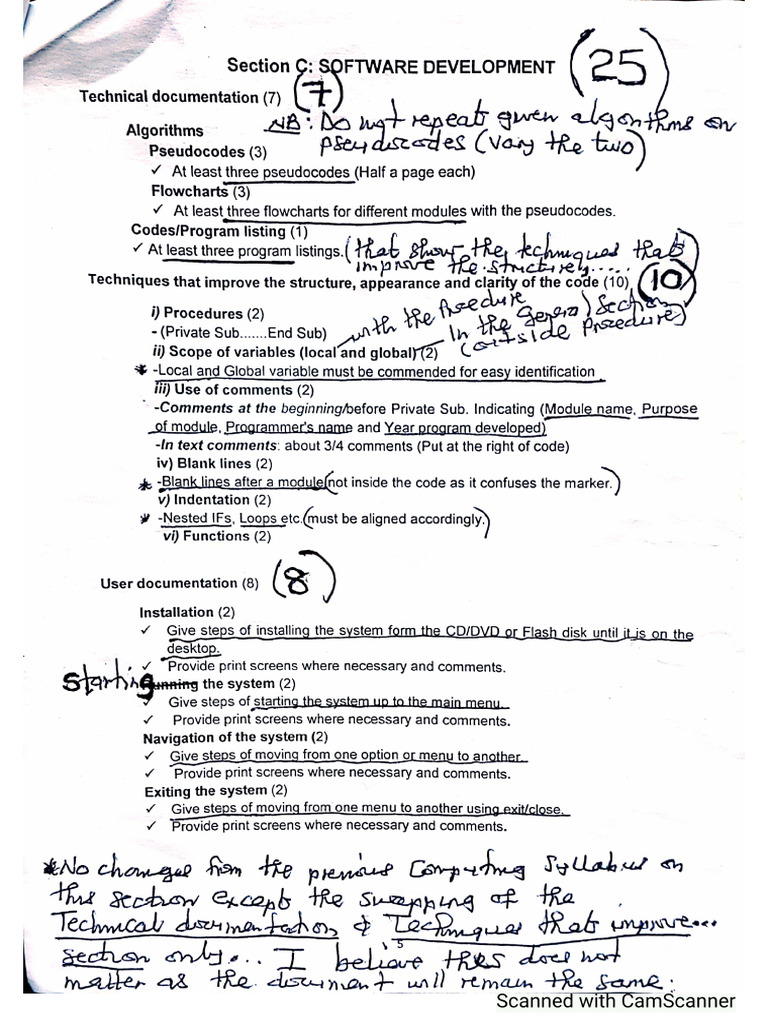 Section C: SOFTWARE DEVELOPMENT (25)
Technical documentation (7) (7)
NB: Do not repeat given algorithms on
Algorithms
pseudocodes (Vary the two)
Pseudocodes (3)
✓ At least three pseudocodes (Half a page each)
Flowcharts (3)
✓ At least three flowcharts for different modules with the pseudocodes.
Codes/Program listing (1)
✓ At least three program listings. (that show the techniques that
improve the structure.....)
Techniques that improve the structure, appearance and clarity of the code (10) (10)
i) Procedures (2)
with the Procedure
- (Private Sub.......End Sub)
In the General Section
(outside Procedure)
ii) Scope of variables (local and global) (2)
* -Local and Global variable must be commended for easy identification
iii) Use of comments (2)
-Comments at the beginning/before Private Sub. Indicating (Module name, Purpose
of module, Programmer's name and Year program developed)
-In text comments: about 3/4 comments (Put at the right of code)
iv) Blank lines (2)
* -Blank lines after a module (not inside the code as it confuses the marker.)
v) Indentation (2)
* -Nested IFs, Loops etc. (must be aligned accordingly.)
vi) Functions (2)
User documentation (8) (8)
Installation (2)
✓ Give steps of installing the system form the CD/DVD or Flash disk until it is on the
desktop.
✓ Provide print screens where necessary and comments.
Starting the system (2)
✓ Give steps of starting the system up to the main menu.
✓ Provide print screens where necessary and comments.
Navigation of the system (2)
✓ Give steps of moving from one option or menu to another.
✓ Provide print screens where necessary and comments.
Exiting the system (2)
✓ Give steps of moving from one menu to another using exit/close.
✓ Provide print screens where necessary and comments.
*No changes from the previous Computing Syllabus on
this section except the swapping of the
Technical documentation & Techniques that improve...
section only... I believe this does not
matter as the document will remain the same.
Scanned with CamScanner